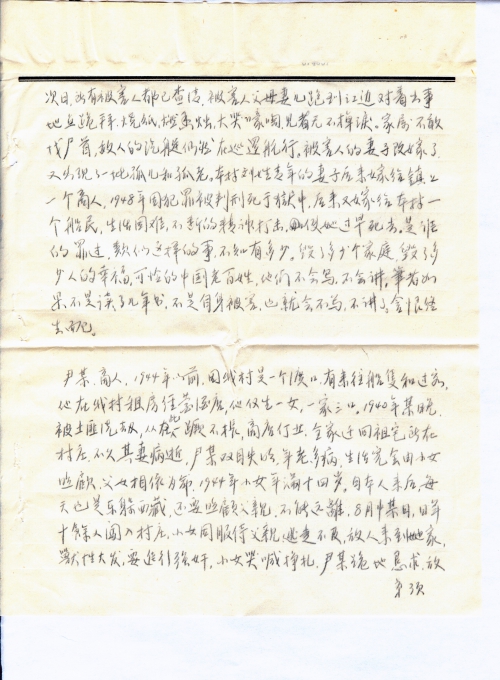 次日,所有被害人都已查清,被害人父母妻儿跑到江边对着出事
地点跪拜烧纸,燃香烛,大哭嚎啕,见者无不掉泪。家属不敢
找尸首,敌人的汽艇仍然在巡逻航行。被害人的妻子改嫁了
又出现了一批孤儿和孤老。本村刘姓青年的妻子后来嫁给镇上
一个商人,1948年因犯罪被判刑死于狱中,后来又嫁给本村一
个船民,生活困难,不断的精神打击,使她过早死去。是谁
的罪过,类似这样的事,不知有多少。毁了多少个家庭,毁了多
少人的幸福,可怜的中国老百姓,他们不会写,不会讲,笔者如
果不是读了几年书,不是自身被害,也就会不写,不讲了,含恨终
生而已。
尹某,商人,1944年以前,因我村是一个渡口,有来往船隻和过客,
他在我村租房住营酒店,他仅生一女,一家三口。1940年某晚
被土匪洗劫,从此一蹶不振,商店行业,全家迁回祖宅所在
村庄,不久其妻病逝,尹某双目失明,年老多病,生活完全由小女
照顾,父女相依为命,1944年小女年满十四岁,自日本人来后,每
天也是东躲西藏,还要照顾父亲,不能远离,8月中某日,日军
十余人闯入村庄,小女因服侍父亲,逃走不及,敌人来到她家,
兽性大发,要进行强奸,小女哭喊挣扎,尹某跪地恳求,放
第 页